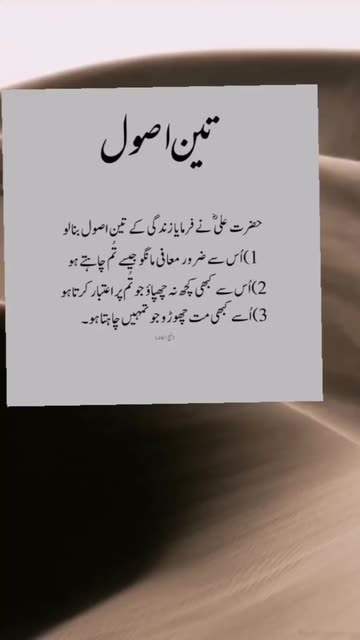 تین اصول
حضرت علیؓ نے فرمایا زندگی کے تین اصول بنا لو
1) اُس سے ضرور معافی مانگو جسے تُم چاہتے ہو
2) اُس سے کبھی کچھ نہ چھپاؤ جو تُم پر اعتبار کرتا ہو
3) اُسے کبھی مت چھوڑو جو تمہیں چاہتا ہو۔